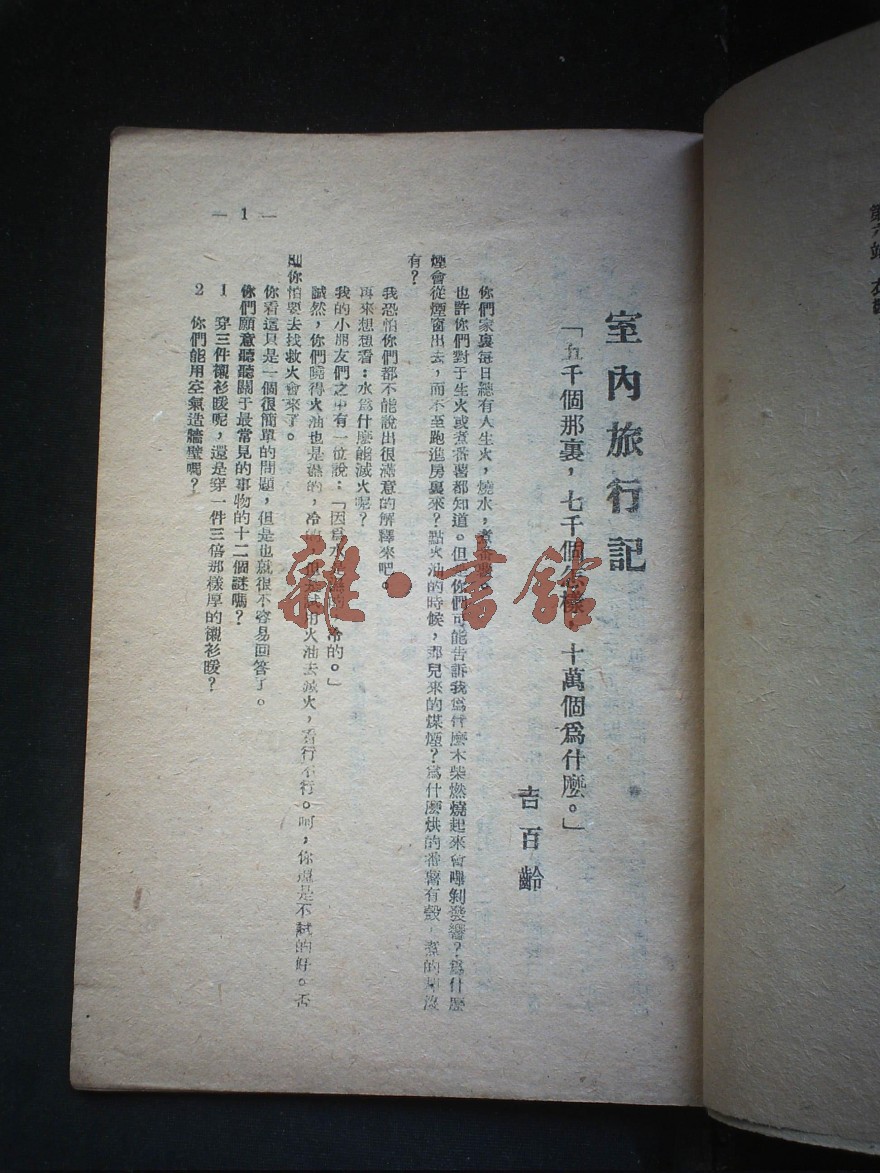 室內旅行記
「五千個那裏，七千個怎樣，十萬個爲什麽。」
吉百齡
你們家裏每日總有人生火，燒水，煮蕃薯。
也許你們對于生火或煮蕃薯都知道。但是你們可能告訴我爲什麽木柴燃燒起來會嗶剝發響？爲什麽
煙會從煙窗出去，而不至跑進房裏來？點火油的時候，那兒來的煤煙？爲什麽烘的蕃薯有殼，煮的却沒
有？
我恐怕你們都不能說出很滿意的解釋來吧。
再來想想看：水爲什麽能滅火呢？
我的小朋友們之中有一位說：「因爲水是濕的，冷的。」
誠然，你們曉得火油也是濕的，冷的，但去試用火油去滅火，看行不行。呵，你還是不試的好。否
則你怕要去找救火會來了。
你看這只是一個很簡單的問題，但是也就很不容易回答了。
你們願意聽聽關于最常見的事物的十二個謎嗎？
1 穿三件襯衫暖呢，還是穿一件三倍那樣厚的襯衫暖？
2 你們能用空氣造牆壁嗎？
— 1 —
第六站
雜·書館